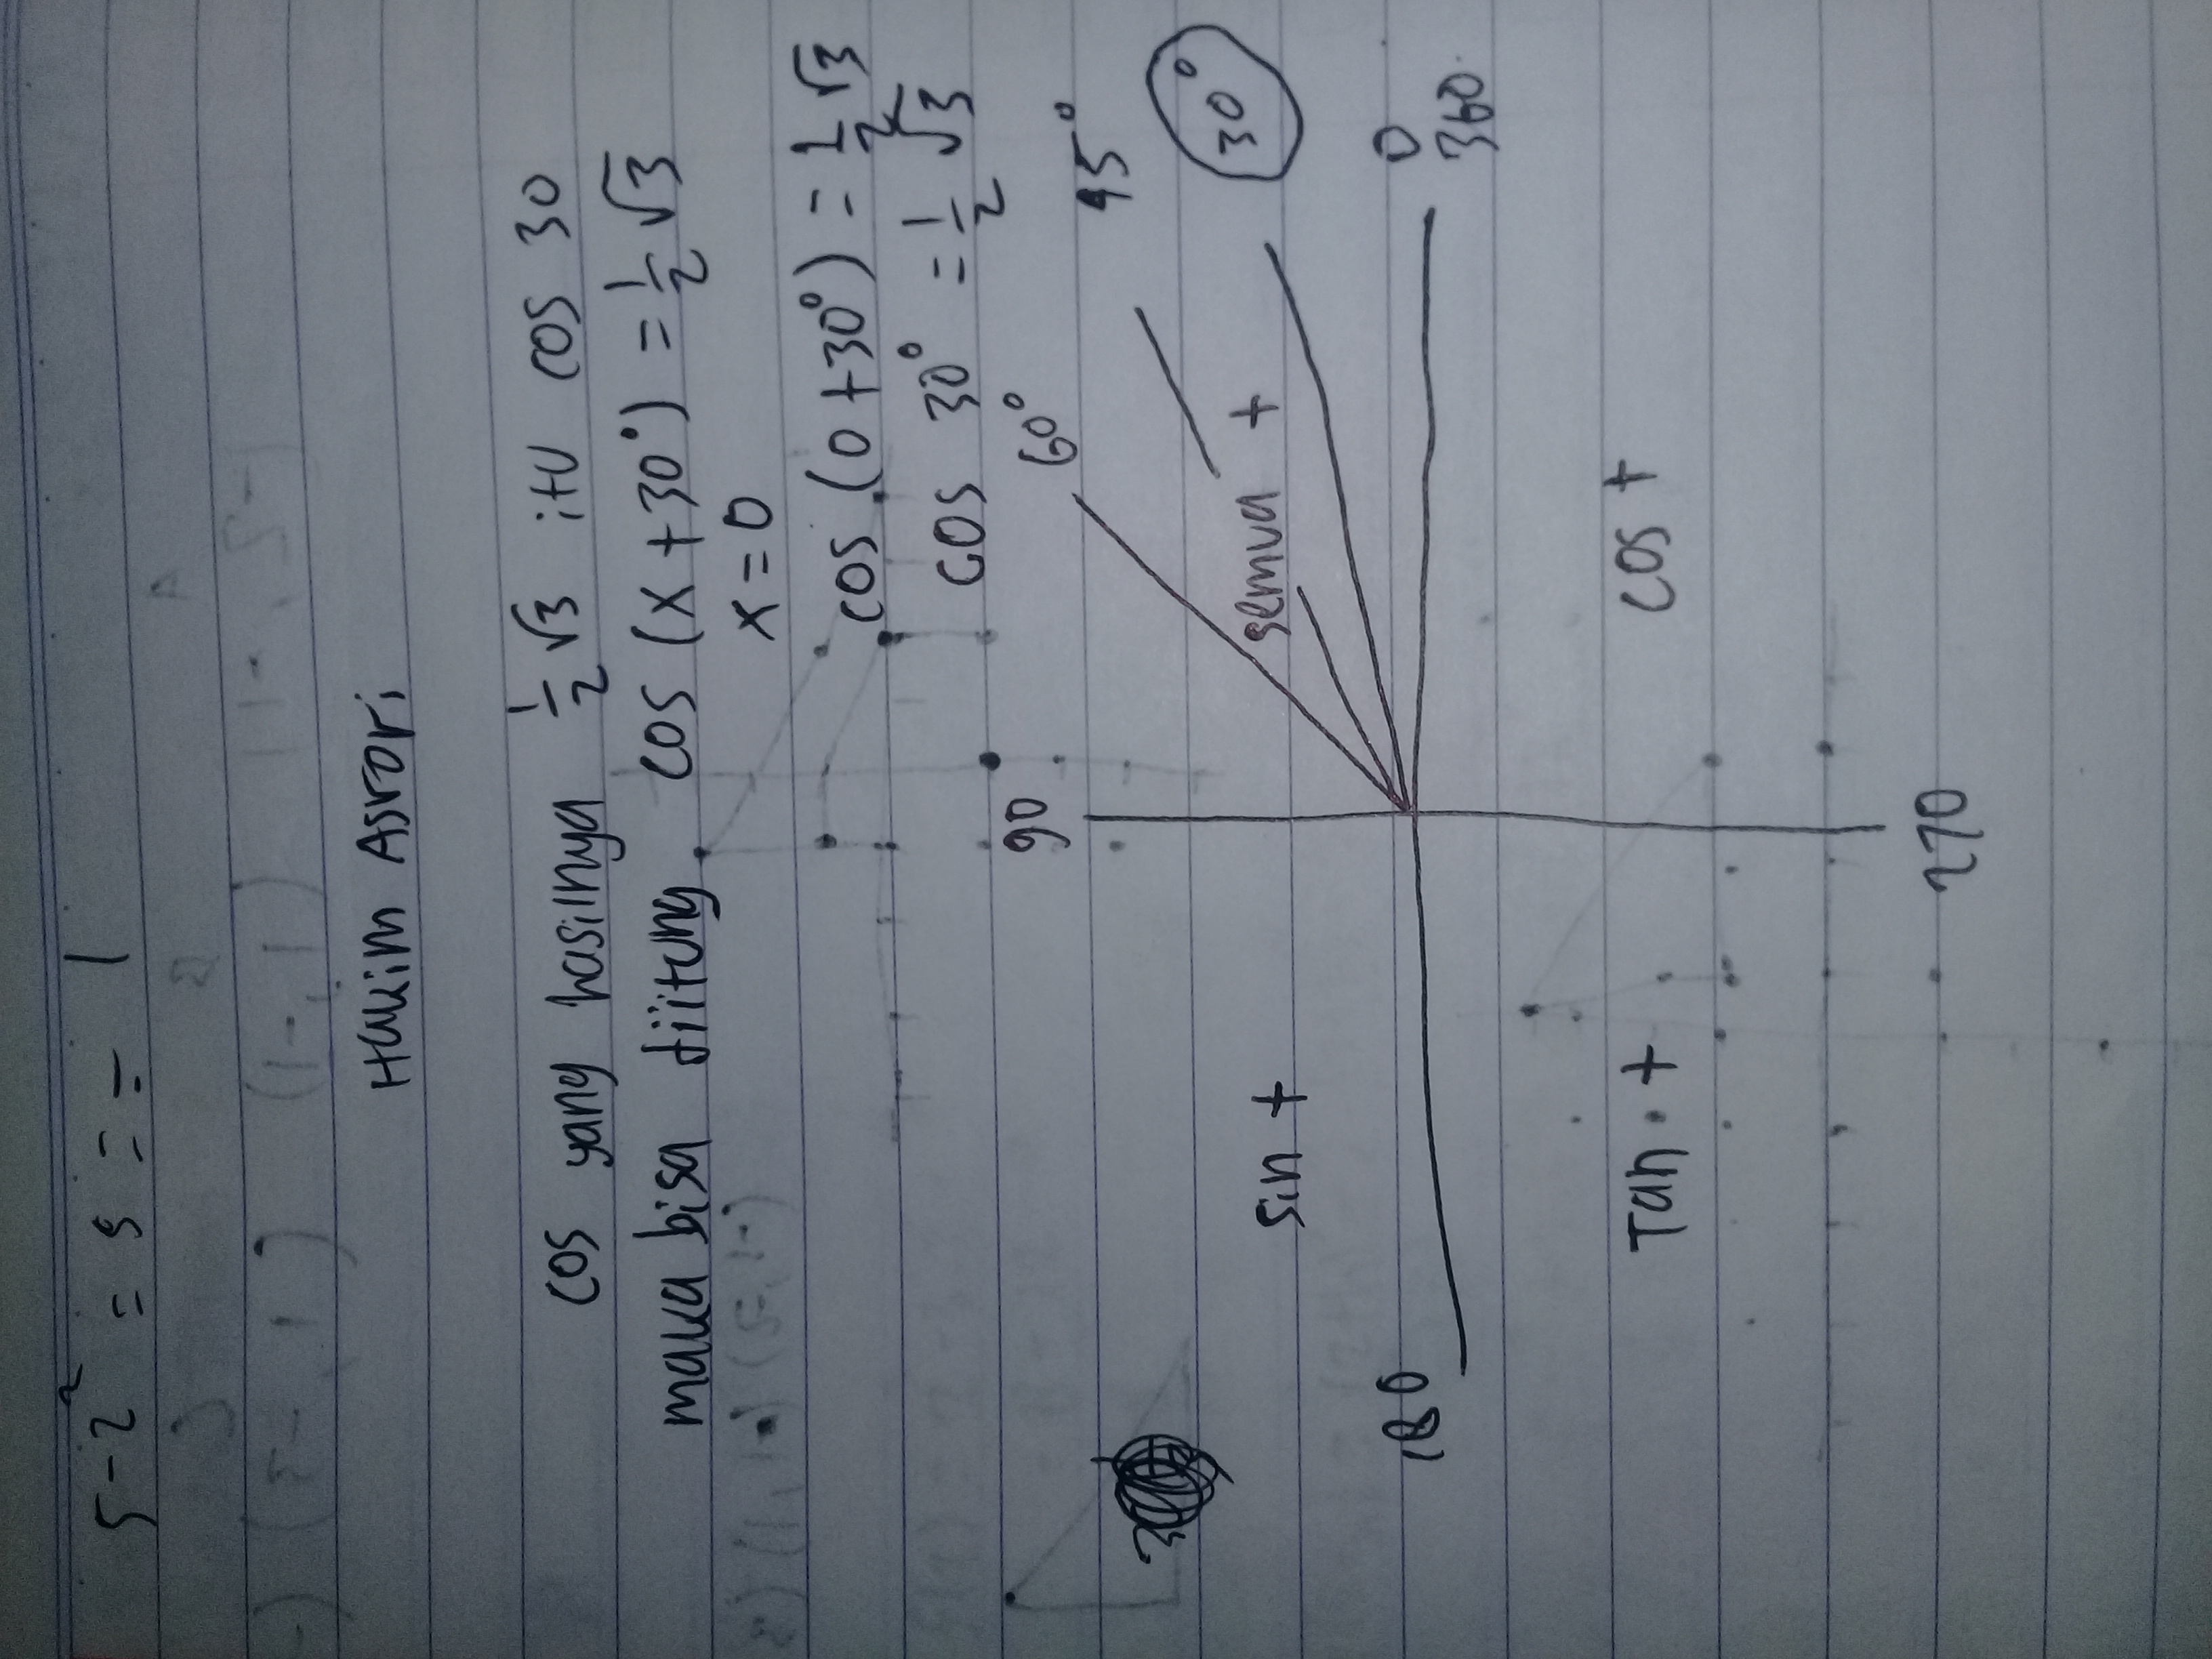 5-2² = 5 = = 1
Hakim Asrori
cos yang hasilnya 1/2 √3 itu cos 30
maka bisa diitung. cos (x+30°) = 1/2 √3
x = 0
cos (0+30°) = 1/2 √3
cos 30° = 1/2 √3
90
60°
45°
30°
sin +
semua +
180
0
360
Tan +
cos +
270